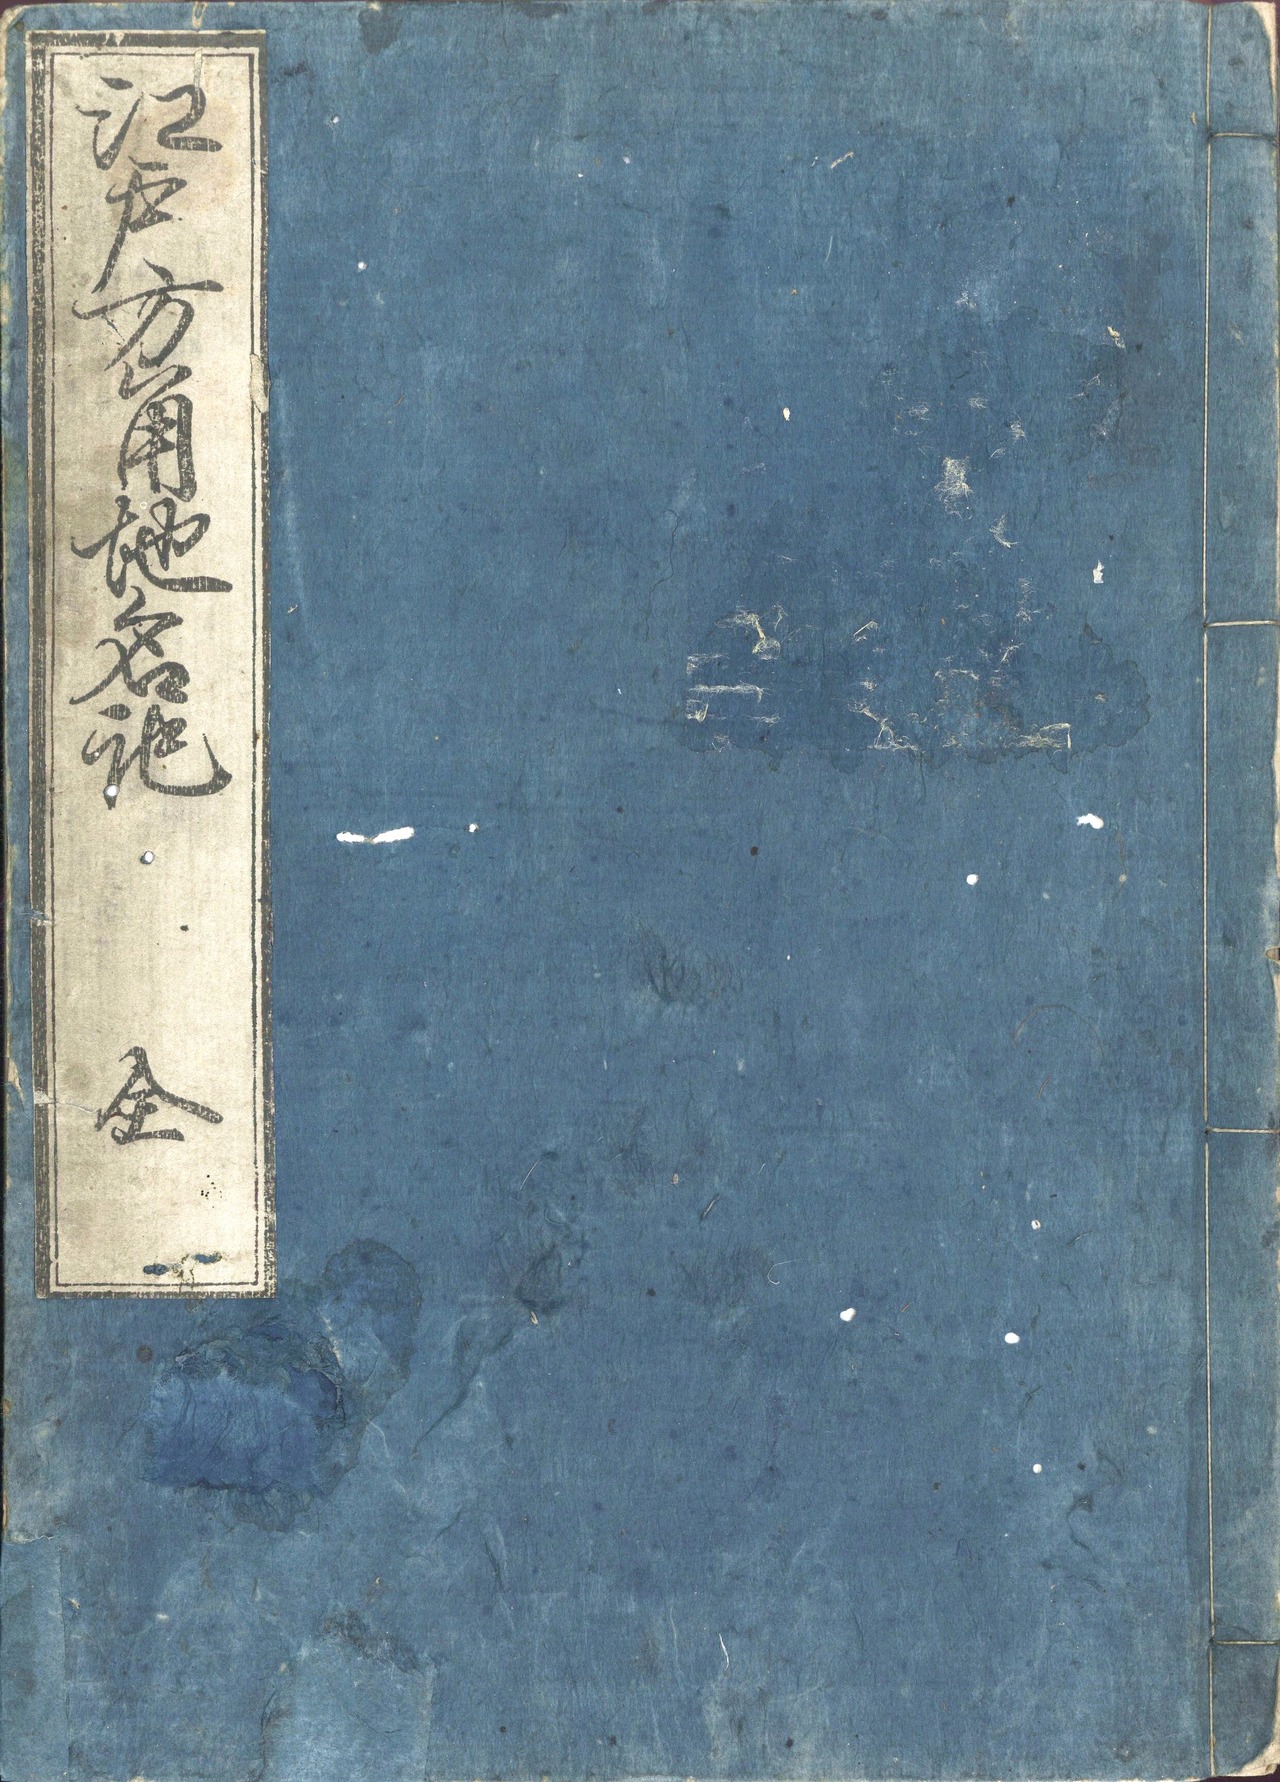 江戸方角地名記
全